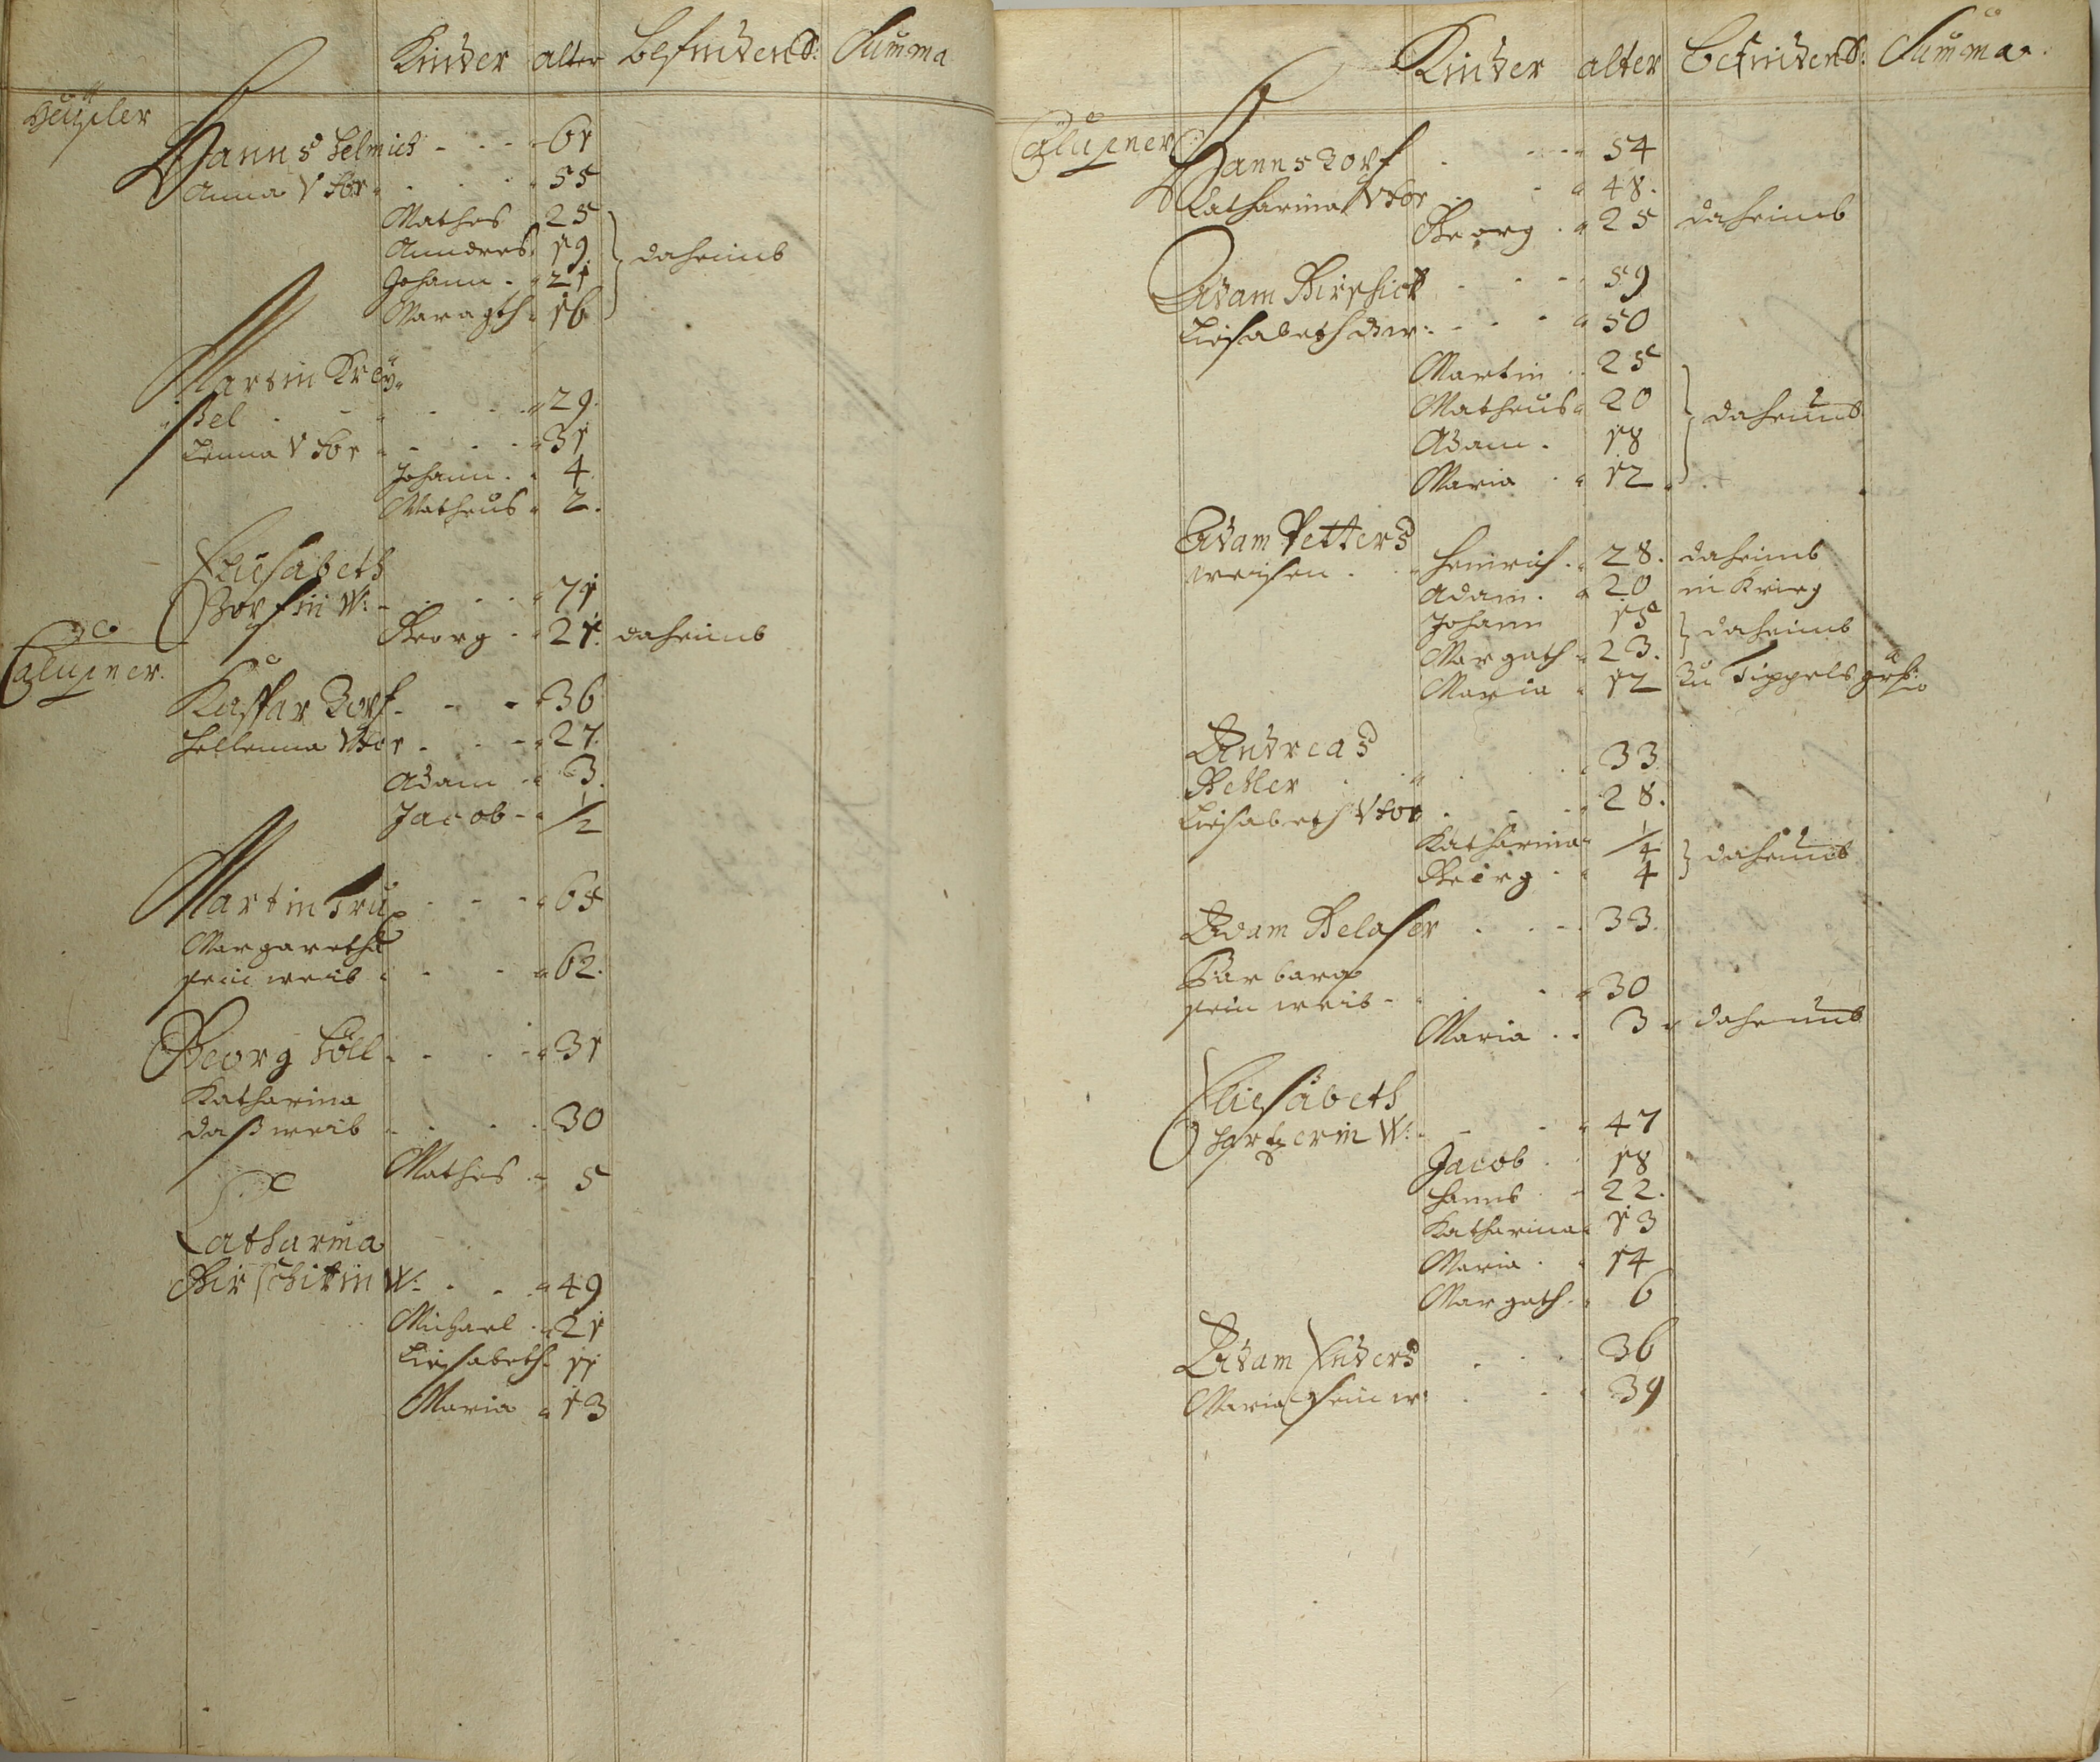 Kinder alter befindend: Summa
Heußler
Hanns Helmich 61
Anna V Hor 55
Mathes 25
Anndres 19
Johann 21 daheimb
Maragth 16
Martin Krey-
ßel 29
Lenna V Hor 31
Johann 4
Matheus 2
Eliesabeth
Zorfin W: 71
Georg 21 daheimb
Calupner
Kaspar Zorf 36
Hellenna V Hor 27
Adam 3
Jacob 1/2
Martin
Margaretha
sein weib 62
Georg Höll 31
Katharina
daß weib 30
Mathes 5
Catharina
Girschikin W: 49
Michael 21
Liesabeth 11
Maria 13
Kinder alter befindend: Summa
Calupner
Hanns Zorf 54
Catharina V Hor 48
Georg 25 daheimb
Adam Girschick 59
Liesabeth 50
Martin 25
Matheus 20
Adam 18 daheimb
Maria 12
Adam Petters
weisen Heinrich 28 daheimb
Adam 20 in Krieg
Johann 15
Margath 23 daheimb
Maria 12 Zu Tippelsgrß:
Andreas
Petter 33
Liesabeth V Hor 28
Katharina 1/4
Georg 4 daheimb
Adam Gelaser 33
Barbara
sein weib 30
Maria 3 daheimb
Eliesabeth
Hartzerin W: 47
Jacob 18
Hanns 22
Katharina 13
Maria 14
Margath 6
Adam Enders 36
Maria sein w: 39